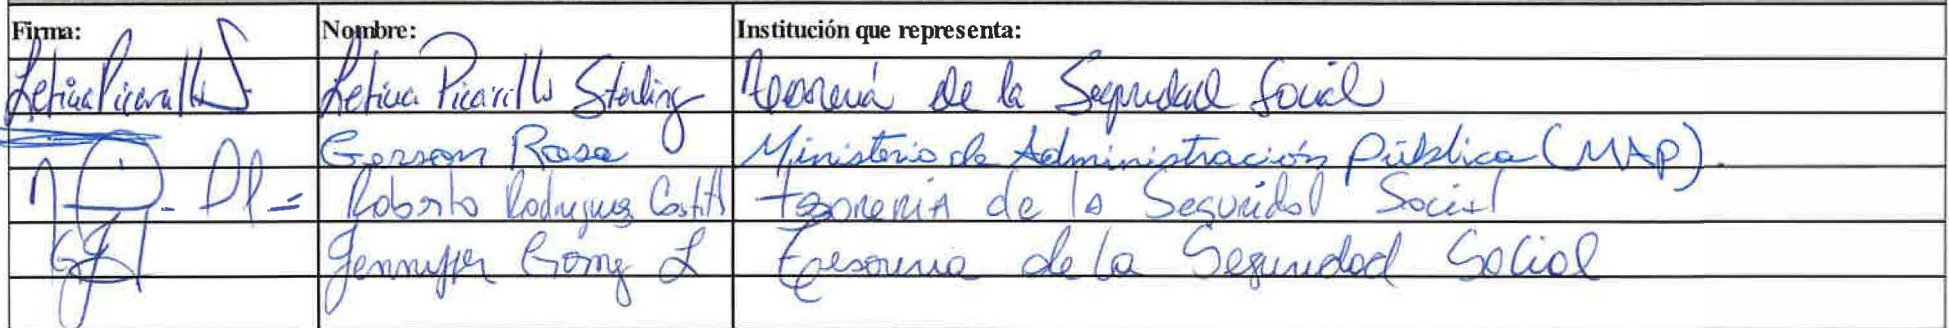 Firma: Nombre: Institución que representa:
Leticia Picarillo Sterling Tesorería de la Seguridad Social
Gerson Rosa Ministerio de Administración Pública (MAP).
Roberto Rodriguez Tesoreria de la Seguridad Social
Jennyfer Gomez L Tesoreria de la Seguridad Social